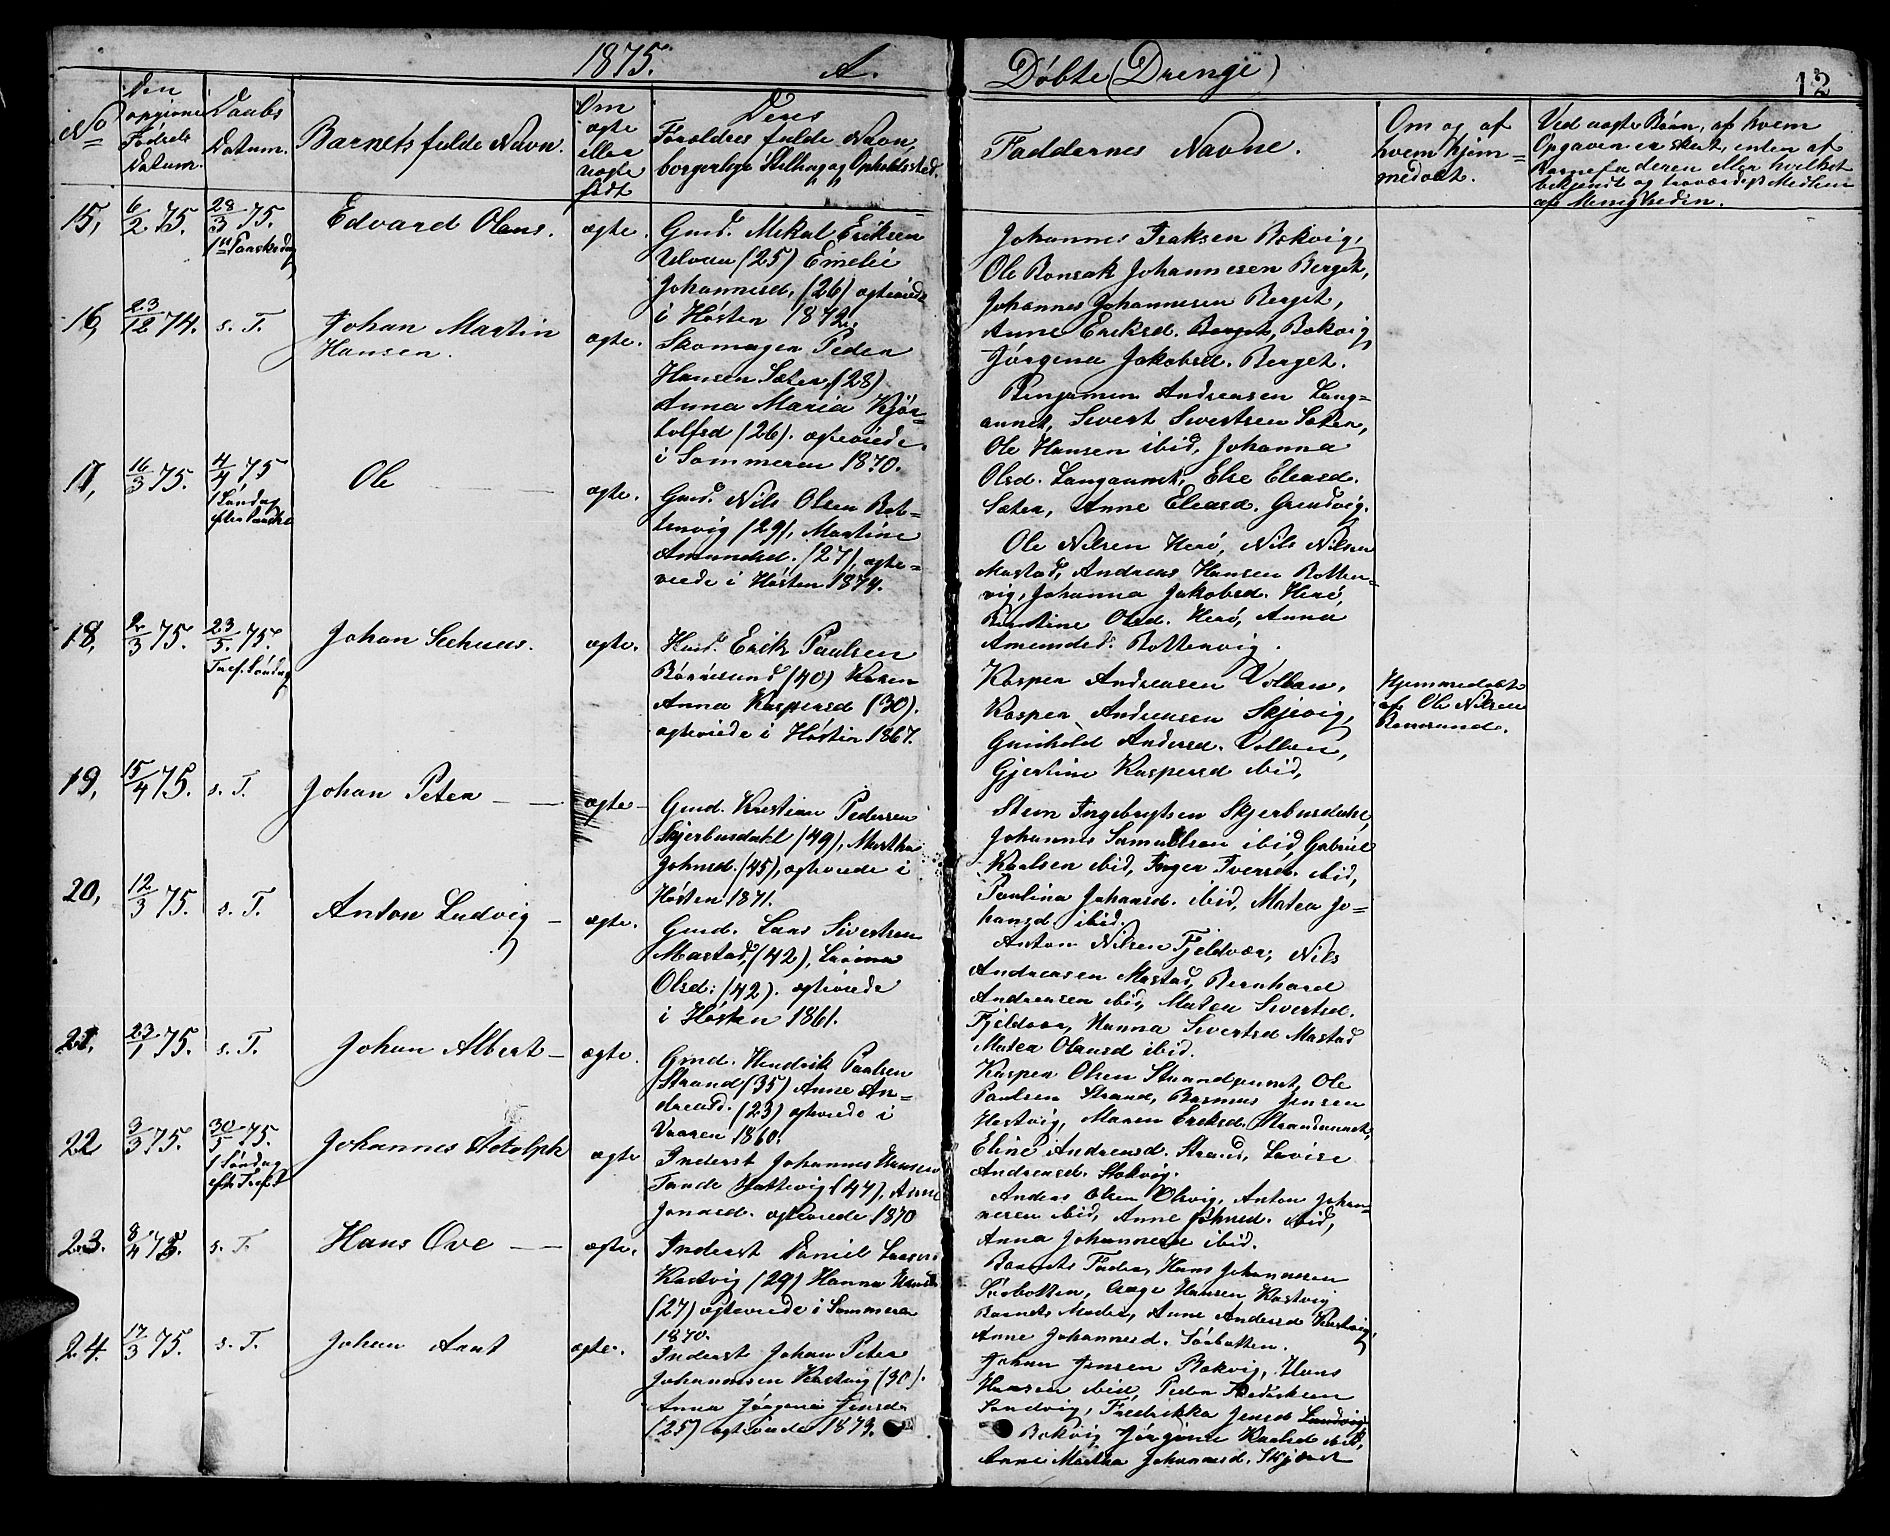 1875.
A.
Døbte (Drenge)
12
No
Den opgivne Fødsels Datum.
Daabs Datum.
Barnets fulde Navn.
Om ægte eller uægte født
Deres Forældres fulde Navn, borgerlige Stilling og Opholdssted.
Faddernes Navne.
Om og af hvem hjemmedøbt.
Ved uægte Børn, af hvem Opgaven er skeet, enten af Barnefaderen eller hvilket bekjendt og troværdigt Medlem af Menigheden.
15, 6/2 75. 28/3 75. Edvard Olaus. ægte.
Gmd. Mikal Eriksen
(25) Emelie
Johannesd. (26) ægteviede
i Høsten 1872.
Johannes Isaksen Bokvig,
Ole Bonsak Johannesen Berget,
Johannes Johannesen Berget,
Anne Eriksd. Berget, Bokvig
Jørgina Jakobsd. Berget.
16, 23/12 74. s. T. Johan Martin
Hansen. ægte.
Skomager Peder
Hansen Sæter, (28)
Anna Maria Kjør-
tolfsd (26). ægteviede
i Sommeren 1870.
Benjamin Andreasen Lang-
aunet, Sivert Sivertsen Sæter,
Ole Hansen ibid, Johanna
Olsd. Langaunet, Else Eleasd.
Sæter, Anne Eleasd. Grundvig.
17, 16/3 75. 4/4 75
1 Søndag
efter Paaske
Ole ægte.
Gmd. Nils Olsen Bot-
tenvig (29), Martine
Amundsd. (27), ægte-
viede i Høsten 1874.
Ole Nilsen Herø, Nils Nilsen
Mastad, Andreas Hansen Botten-
vig, Johanna Jakobsd. Herø
Olsd. Herø, Anna
Amundsd. Bottenvig.
18, 2/3 75. 23/5. 75.
Tref. Søndag
Johan Seehuus. ægte.
Husd. Erik Paulsen
Børøsund (40) Karen
Anna Kaspersd (30).
ægteviede i Høsten 1867.
Kasper Andreasen Vollan,
Kasper Andreasen Skjevig,
Gunhild Andersd. Vollan,
Gjertine Kaspersd ibid,
Hjemmedøbt
af Ole Nilsen
Ramsund.
19, 15/4 75. s. T. Johan Peter ægte
Gmd. Kristian Pedersen
Skjerbusdahl (49), Martha
Johnsd. (45), ægteviede i
Høsten 1871.
Sten Ingebrigtsen Skjerbusdahl,
Johannes Samuelsen ibid, Gabriel
Karlsen ibid, Inger Iversd. ibid,
Paulina Johansd. ibid, Matea Jo-
hansd. ibid.
20, 12/3 75. s. T. Anton Ludvig ægte.
Gmd. Lars Sivertsen
Mastad, (42),
Olsd. (42). ægteviede
i Høsten 1861.
Anton Nilsen Fjeldvær, Nils
Andreasen Mastad, Bernhard
Andreasen ibid, Matea Sivertsd.
Fjeldvær, Hanna Sivertsd Mastad
Matea Olausd ibid.
21, 23/1 75. s. T. Johan Albert ægte.
Gmd. Hendrik Paulsen
Strand (35) Anne An-
dreasd. (23) ægteviede i
Vaaren 1860.
Kasper Olsen Strandaunet, Ole
Paulsen Strand, Rasmus Jensen
Hestvig, Maren Eriksd. Strandaunet,
Eline Andreasd. Strand, Lovise
Andreasd. Stokvig.
22 3/3 75. 30/5 75.
1 Søndag
eft. Tref.
Johannes Adolph ægte
Inderst Johannes Hansen
Hattevig (47), Anne
Jonasd. ægteviede 1870
Anders Olsen Olvig, Anton Johan-
nesen ibid, Anne Johnsd. ibid,
Anna Johannesd ibid.
23. 8/4 75. s. T. Hans Ove ægte.
Inderst Daniel Larsen
Kastvig (29) Hanna Hansd.
(27) ægteviede i Sommeren
1870.
Barnets Fader, Hans Johannesen
Sørbotten, Aage Hansen Kastvig
Barnets Moder, Anne Andersd Kastvig,
Anne Johannesd. Sørbotten.
24. 17/3 75. s. T. Johan Arnt ægte.
Inderst Johan Peter
Johannesen Kastvig (30).
Anna Jørgine Jensd.
(25) ægteviede 1873.
Johan Jensen Bokvig, Hans
Hansen ibid, Peder Fredriksen
Sandvig, Fredrikka Jensd Sandvig
Bokvig Jørgine Karlsd ibid,
Anne Martha Johannesd.